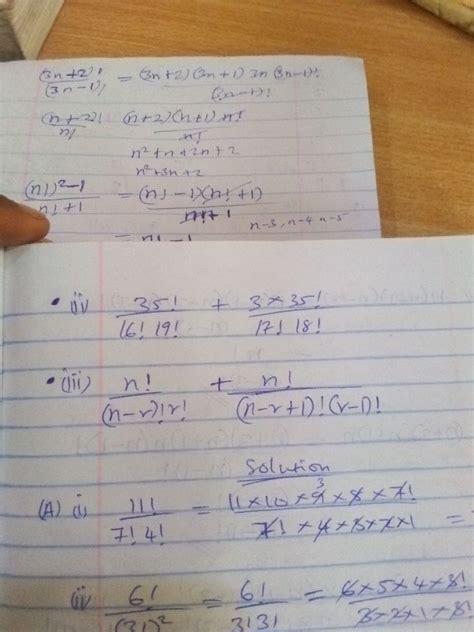 (3n+2)! / (3n-1)! = (3n+2)(3n+1) 3n (3n-1)! / (3n-1)!
(n+2)! / n! (n+2)(n+1) n! / n!
n²+n+2n+2
n²+3n+2
(n!)²-1 / n!+1 = (n!-1)(n!+1) / n!+1
n-3, n-4 n-5
= n!-1
• iv 35! / 16! 19! + 3×35! / 17! 18!
• (iii) n! / (n-r)!r! + n! / (n-r+1)!(r-1)!
Solution
(A) i) 11! / 7! 4! = 11×10×9×8×7! / 7!×4×3×2×1 =
3
ii 6! / (3!)² = 6! / 3!3! = 6×5×4×3! / 3×2×1×3!